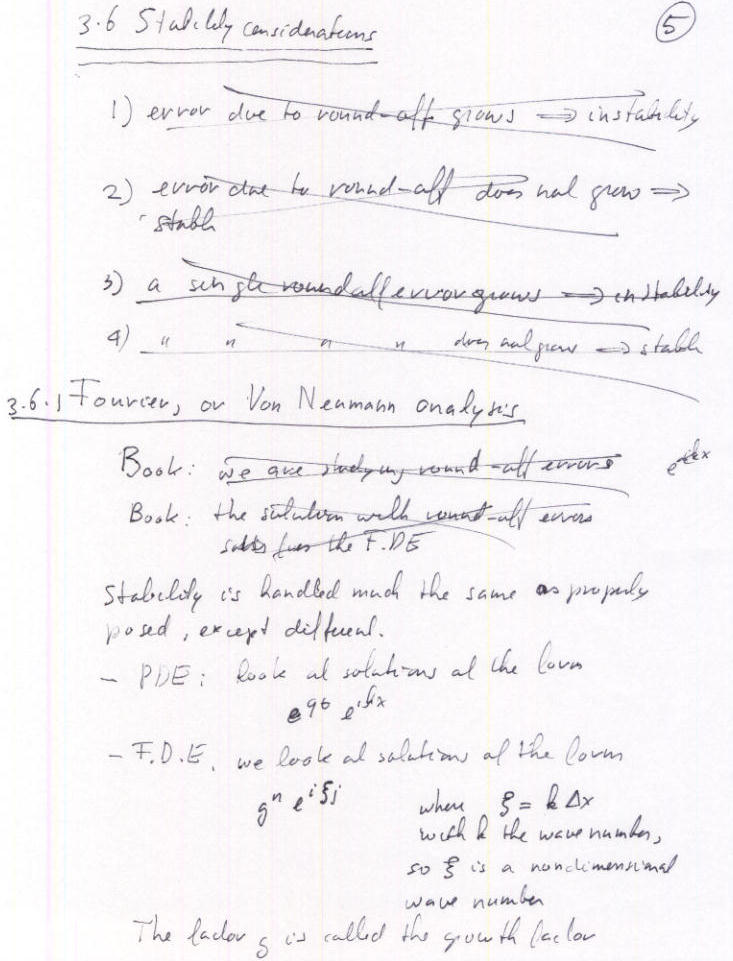 3.6 Stability considerations
5
1) error due to round-off grows ⇒ instability
2) error due to round-off does not grow ⇒
stable
3) a single roundoff error grows ⇒ instability
4) " " " " does not grow ⇒ stable
3.6.1 Fourier, or Von Neumann analysis
Book: we are studying round-off errors
e^{ikx}
Book: the solution with round-off errors
satisfies the F.DE
Stability is handled much the same as properly
posed, except different.
- PDE: look at solutions of the form
e^{qt} e^{ikx}
- F.D.E. we look at solutions of the form
g^n e^{iξj} where ξ = kΔx
with k the wave number,
so ξ is a nondimensional
wave number
The factor g is called the growth factor